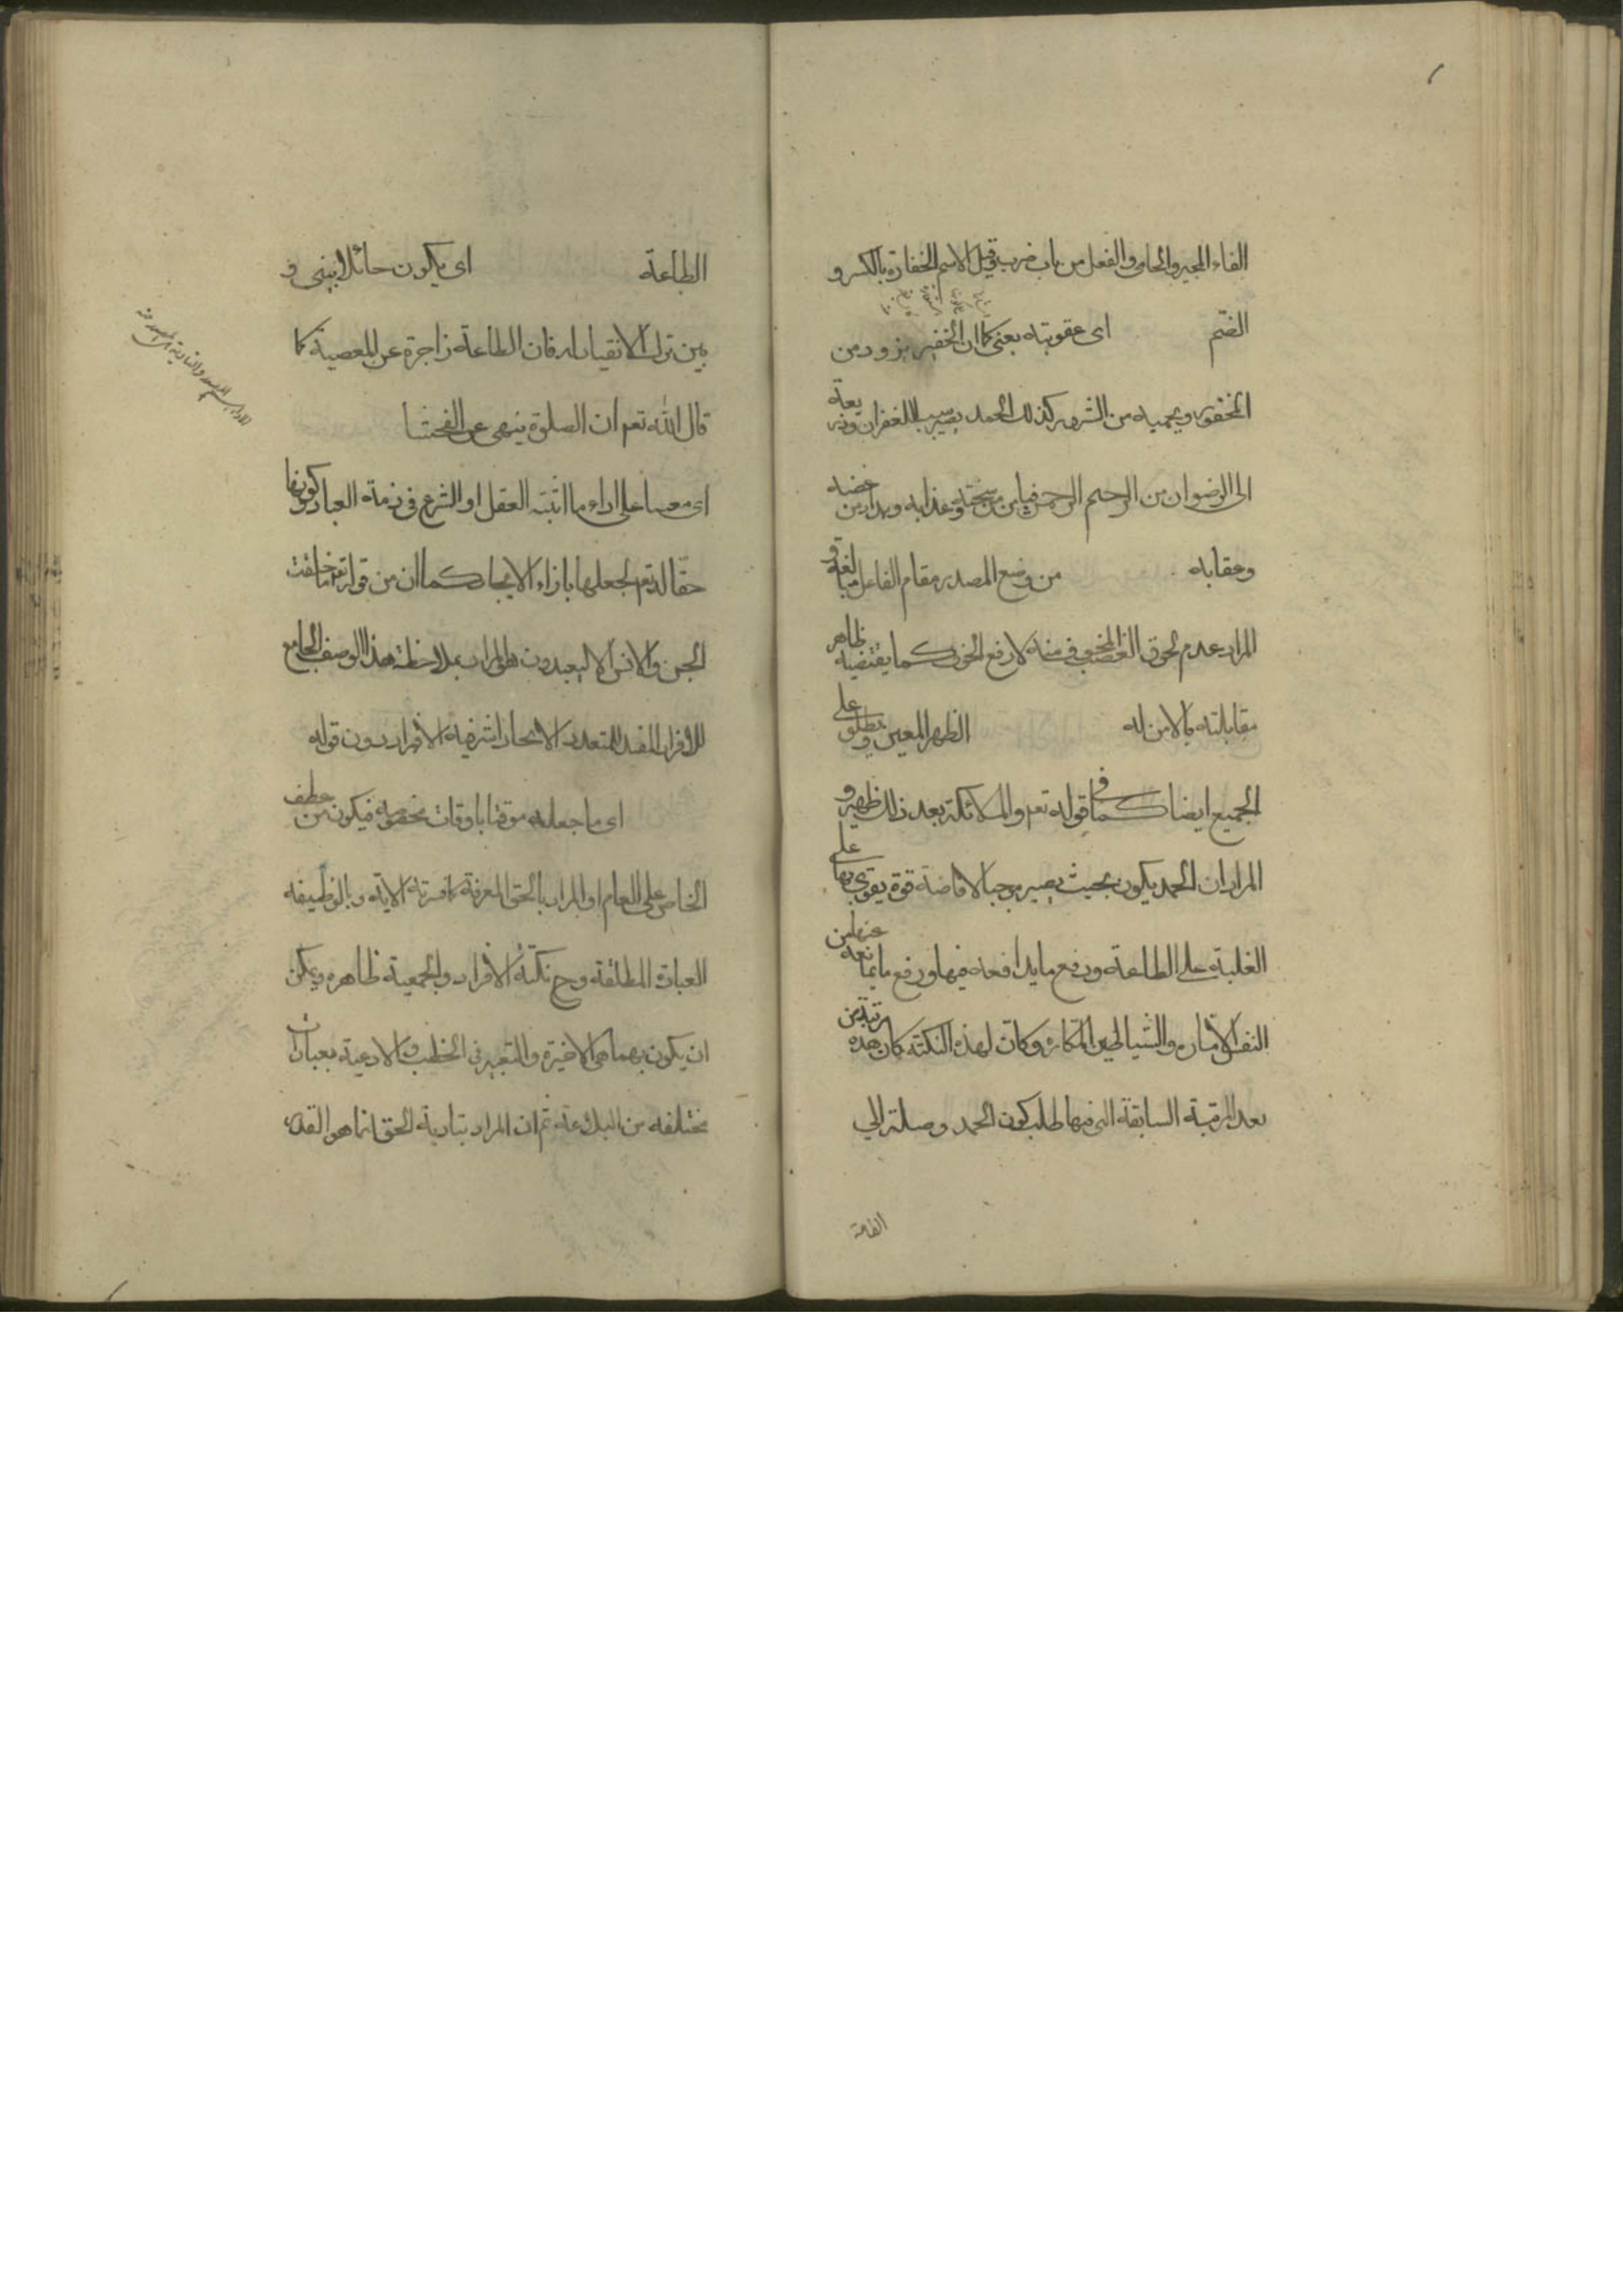 الفاء المجير والحامي والفعل من باب ضرب وقيل الاسم الخفارة بالكسر و
الضم اى عقوبته يعنى كما ان الخفير يزود من
المخفور ويحميه من الشرور كذلك الحمد يصير سببا للغفران وذريعة
الى الرضوان من الرحيم الرحمن فيامن من سخطه وعذابه وبدا من غضبه
وعقابه من وضع المصدر مقام الفاعل مبالغة و
المراد عدم لحوق الغضب المخوف منه لا رفع الخوف كما يقتضيه ظاهر
مقابلته بالامن له الظهر المعين ويطلق على
الجميع ايضا كما في قوله تعم والملائكة بعد ذلك ظهير و
المراد ان الحمد يكون بحيث يصير موجبا لافاضة قوة يقوى بها على
الغلبة على الطاعة ودفع ما يدافعه فيها ورفع ما يمانعه عنها من
النفس الامارة والشياطين المكارة وكان لهذه النكتة كان هذه مرتبتين
بعد المرتبة السابقة التى فيها طلب كون الحمد وصلة الى
الطاعة
الطاعة اى يكون حائلا بينى و
بين ترك الانقياد له فان الطاعة زاجرة عن المعصية كما
قال الله تعم ان الصلوة ينهى عن الفحشا
اى معينا على اداء ما اثبته العقل او الشرع فى ذمة العباد كونها
حقا له تعم لجعلها بازاء الايجاد كما ان من قوله تعم ما خلقت
الجن والانس الا ليعبدون هو المراد بملاحظة هذا الوصف الجامع
للافراد المفيد للمتعدد الاتحاد اشرفية الافراد دون قوله
اى ما جعله موقتا باوقات مخصوصة فيكون من عطف
الخاص على العام او المراد بالحق المعرفة كما فسرته الاية وبالوظيفه
العبادة المطلقة وح نكتة الافراد والجمعية ظاهره ويمكن
ان يكون بهما هى الاخيرة والتعبير فى الخطب والادعية بعبارات
مختلفه من البلاغة ثم ان المراد بتادية الحق انما هو القدر